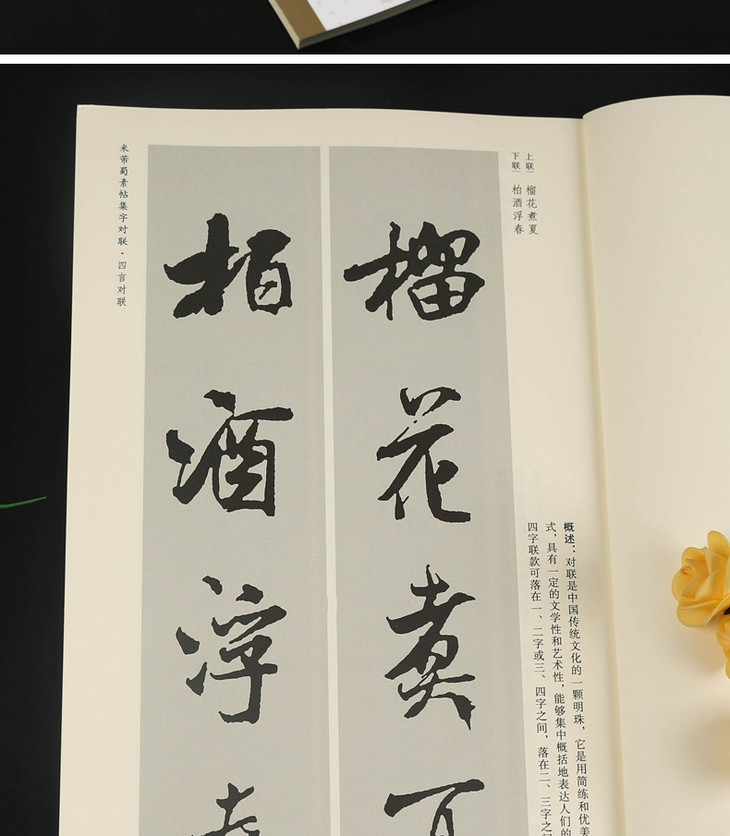 上联｜榴花煮夏
下联｜柏酒浮春
榴花煮夏
柏酒浮春
概述：对联是中国传统文化的一颗明珠，它是用简练和优美
式，具有一定的文学性和艺术性，能够集中概括地表达人们的
四字联款可落在一、二字或三、四字之间，落在二、三字之
米芾蜀素帖集字对联·四言对联